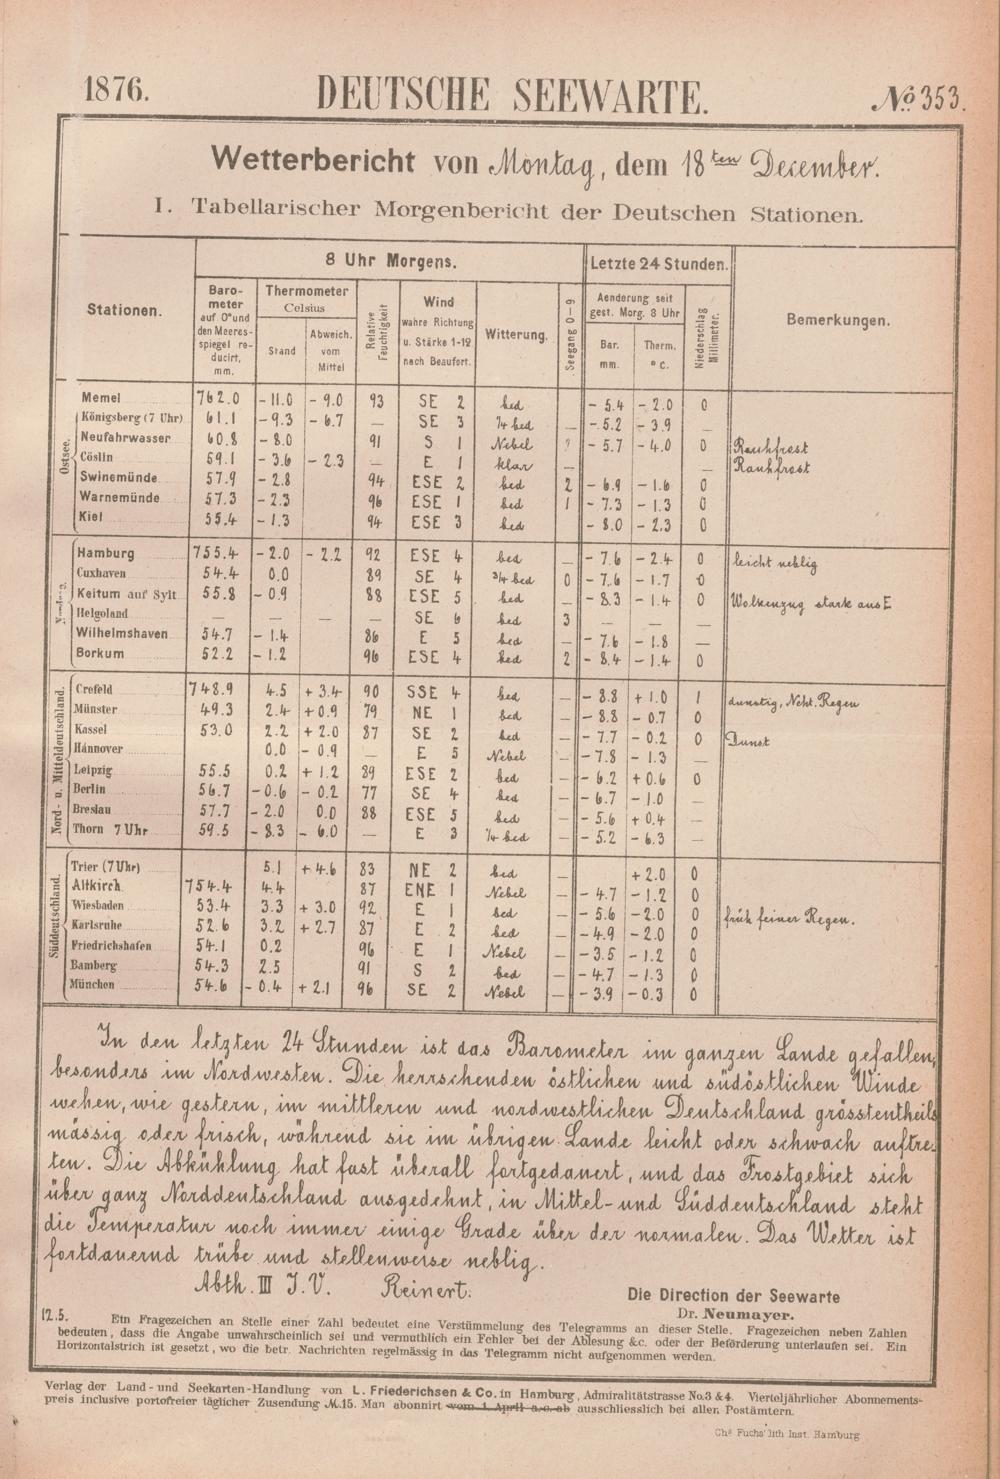 1876. DEUTSCHE SEEWARTE. No. 353.
Wetterbericht von Montag, dem 18ten December.
I. Tabellarischer Morgenbericht der Deutschen Stationen.
8 Uhr Morgens. Letzte 24 Stunden.
Stationen. Baro-meter auf 0° und den Meeres-spiegel re-ducirt, mm. Thermometer Celsius Stand Abweich. vom Mittel Relative Feuchtigkeit Wind wahre Richtung u. Stärke 1-12 nach Beaufort. Witterung. Seegang 0-9 Aenderung seit gest. Morg. 8 Uhr Bar. mm. Therm. °C. Niederschlag Millimeter. Bemerkungen.
Ostsee.
Memel 762.0 -11.0 -9.0 93 SE 2 bed -5.4 -2.0 0
Königsberg (7 Uhr) 61.1 -9.3 -6.7 — SE 3 ¼ bed -5.2 -3.9 —
Neufahrwasser 60.8 -8.0 91 S 1 Nebel ? -5.7 -4.0 0 Rauhfrost
Cöslin 59.1 -3.6 -2.3 — E 1 klar — — Rauhfrost
Swinemünde 57.9 -2.8 94 ESE 2 bed 2 -6.9 -1.6 0
Warnemünde 57.3 -2.3 96 ESE 1 bed 1 -7.3 -1.3 0
Kiel 55.4 -1.3 94 ESE 3 bed -8.0 -2.3 0
Hamburg 755.4 -2.0 -2.2 92 ESE 4 bed — -7.6 -2.4 0 leicht neblig
Cuxhaven 54.4 0.0 89 SE 4 ¾ bed 0 -7.6 -1.7 0
Keitum auf Sylt 55.8 -0.9 88 ESE 5 bed — -8.3 -1.4 0 Wolkenzug stark aus E
Helgoland — — — — SE 6 bed 3 — — —
Wilhelmshaven 54.7 -1.4 86 E 5 bed — -7.6 -1.8 —
Borkum 52.2 -1.2 96 ESE 4 bed 2 -8.4 -1.4 0
Nord- u. Mitteldeutschland.
Crefeld 748.9 4.5 +3.4 90 SSE 4 bed — -8.8 +1.0 1 dunstig, Ncht. Regen
Münster 49.3 2.4 +0.9 79 NE 1 bed — -8.8 -0.7 0
Kassel 53.0 2.2 +2.0 87 SE 2 bed — -7.7 -0.2 0 Dunst
Hannover 0.0 -0.9 — E 5 Nebel — -7.8 -1.3 —
Leipzig 55.5 0.2 +1.2 89 ESE 2 bed — -6.2 +0.6 0
Berlin 56.7 -0.6 -0.2 77 SE 4 bed — -6.7 -1.0 —
Breslau 57.7 -2.0 0.0 88 ESE 5 bed — -5.6 +0.4 —
Thorn 7 Uhr 59.5 -8.3 -6.0 — E 3 ¼ bed — -5.2 -6.3 —
Süddeutschland.
Trier (7 Uhr) 5.1 +4.6 83 NE 2 bed — +2.0 0
Altkirch 754.4 4.4 87 ENE 1 Nebel — -4.7 -1.2 0
Wiesbaden 53.4 3.3 +3.0 92 E 1 bed — -5.6 -2.0 0 früh feiner Regen.
Karlsruhe 52.6 3.2 +2.7 87 E 2 bed — -4.9 -2.0 0
Friedrichshafen 54.1 0.2 96 E 1 Nebel — -3.5 -1.2 0
Bamberg 54.3 2.5 91 S 2 bed — -4.7 -1.3 0
München 54.6 -0.4 +2.1 96 SE 2 Nebel — -3.9 -0.3 0
In den letzten 24 Stunden ist das Barometer im ganzen Lande gefallen,
besonders im Nordwesten. Die herrschenden östlichen und südöstlichen Winde
wehen, wie gestern, im mittleren und nordwestlichen Deutschland grösstentheils
mässig oder frisch, während sie im übrigen Lande leicht oder schwach auftre-
ten. Die Abkühlung hat fast überall fortgedauert, und das Frostgebiet sich
über ganz Norddeutschland ausgedehnt, in Mittel- und Süddeutschland steht
die Temperatur noch immer einige Grade über der normalen. Das Wetter ist
fortdauernd trübe und stellenweise neblig.
Abth. III J.V. Reinert.
Die Direction der Seewarte
Dr. Neumayer.
12.5. Ein Fragezeichen an Stelle einer Zahl bedeutet eine Verstümmelung des Telegramms an dieser Stelle. Fragezeichen neben Zahlen
bedeuten, dass die Angabe unwahrscheinlich sei und vermuthlich ein Fehler bei der Ablesung &c. oder der Beförderung unterlaufen sei. Ein
Horizontalstrich ist gesetzt, wo die betr. Nachrichten regelmässig in das Telegramm nicht aufgenommen werden.
Verlag der Land- und Seekarten-Handlung von L. Friederichsen & Co. in Hamburg, Admiralitätstrasse No. 3 & 4. Vierteljährlicher Abonnements-
preis inclusive portofreier täglicher Zusendung M. 15. Man abonnirt vom 1. April a.c. ab ausschliesslich bei allen Postämtern.
Chs Fuchs' lith Inst. Hamburg